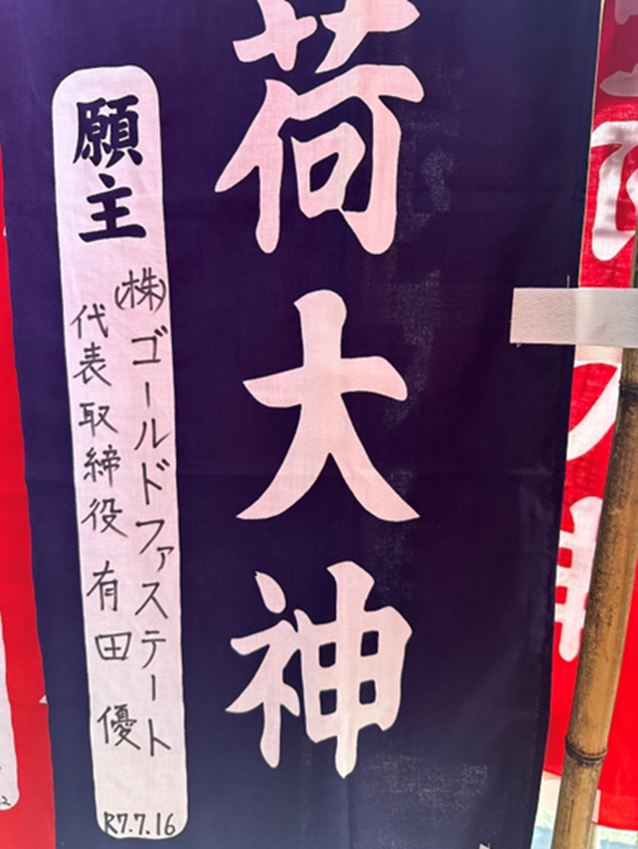 荷大神
願主
(株)ゴールドファステート
代表取締役 有田 優
R7.7.16